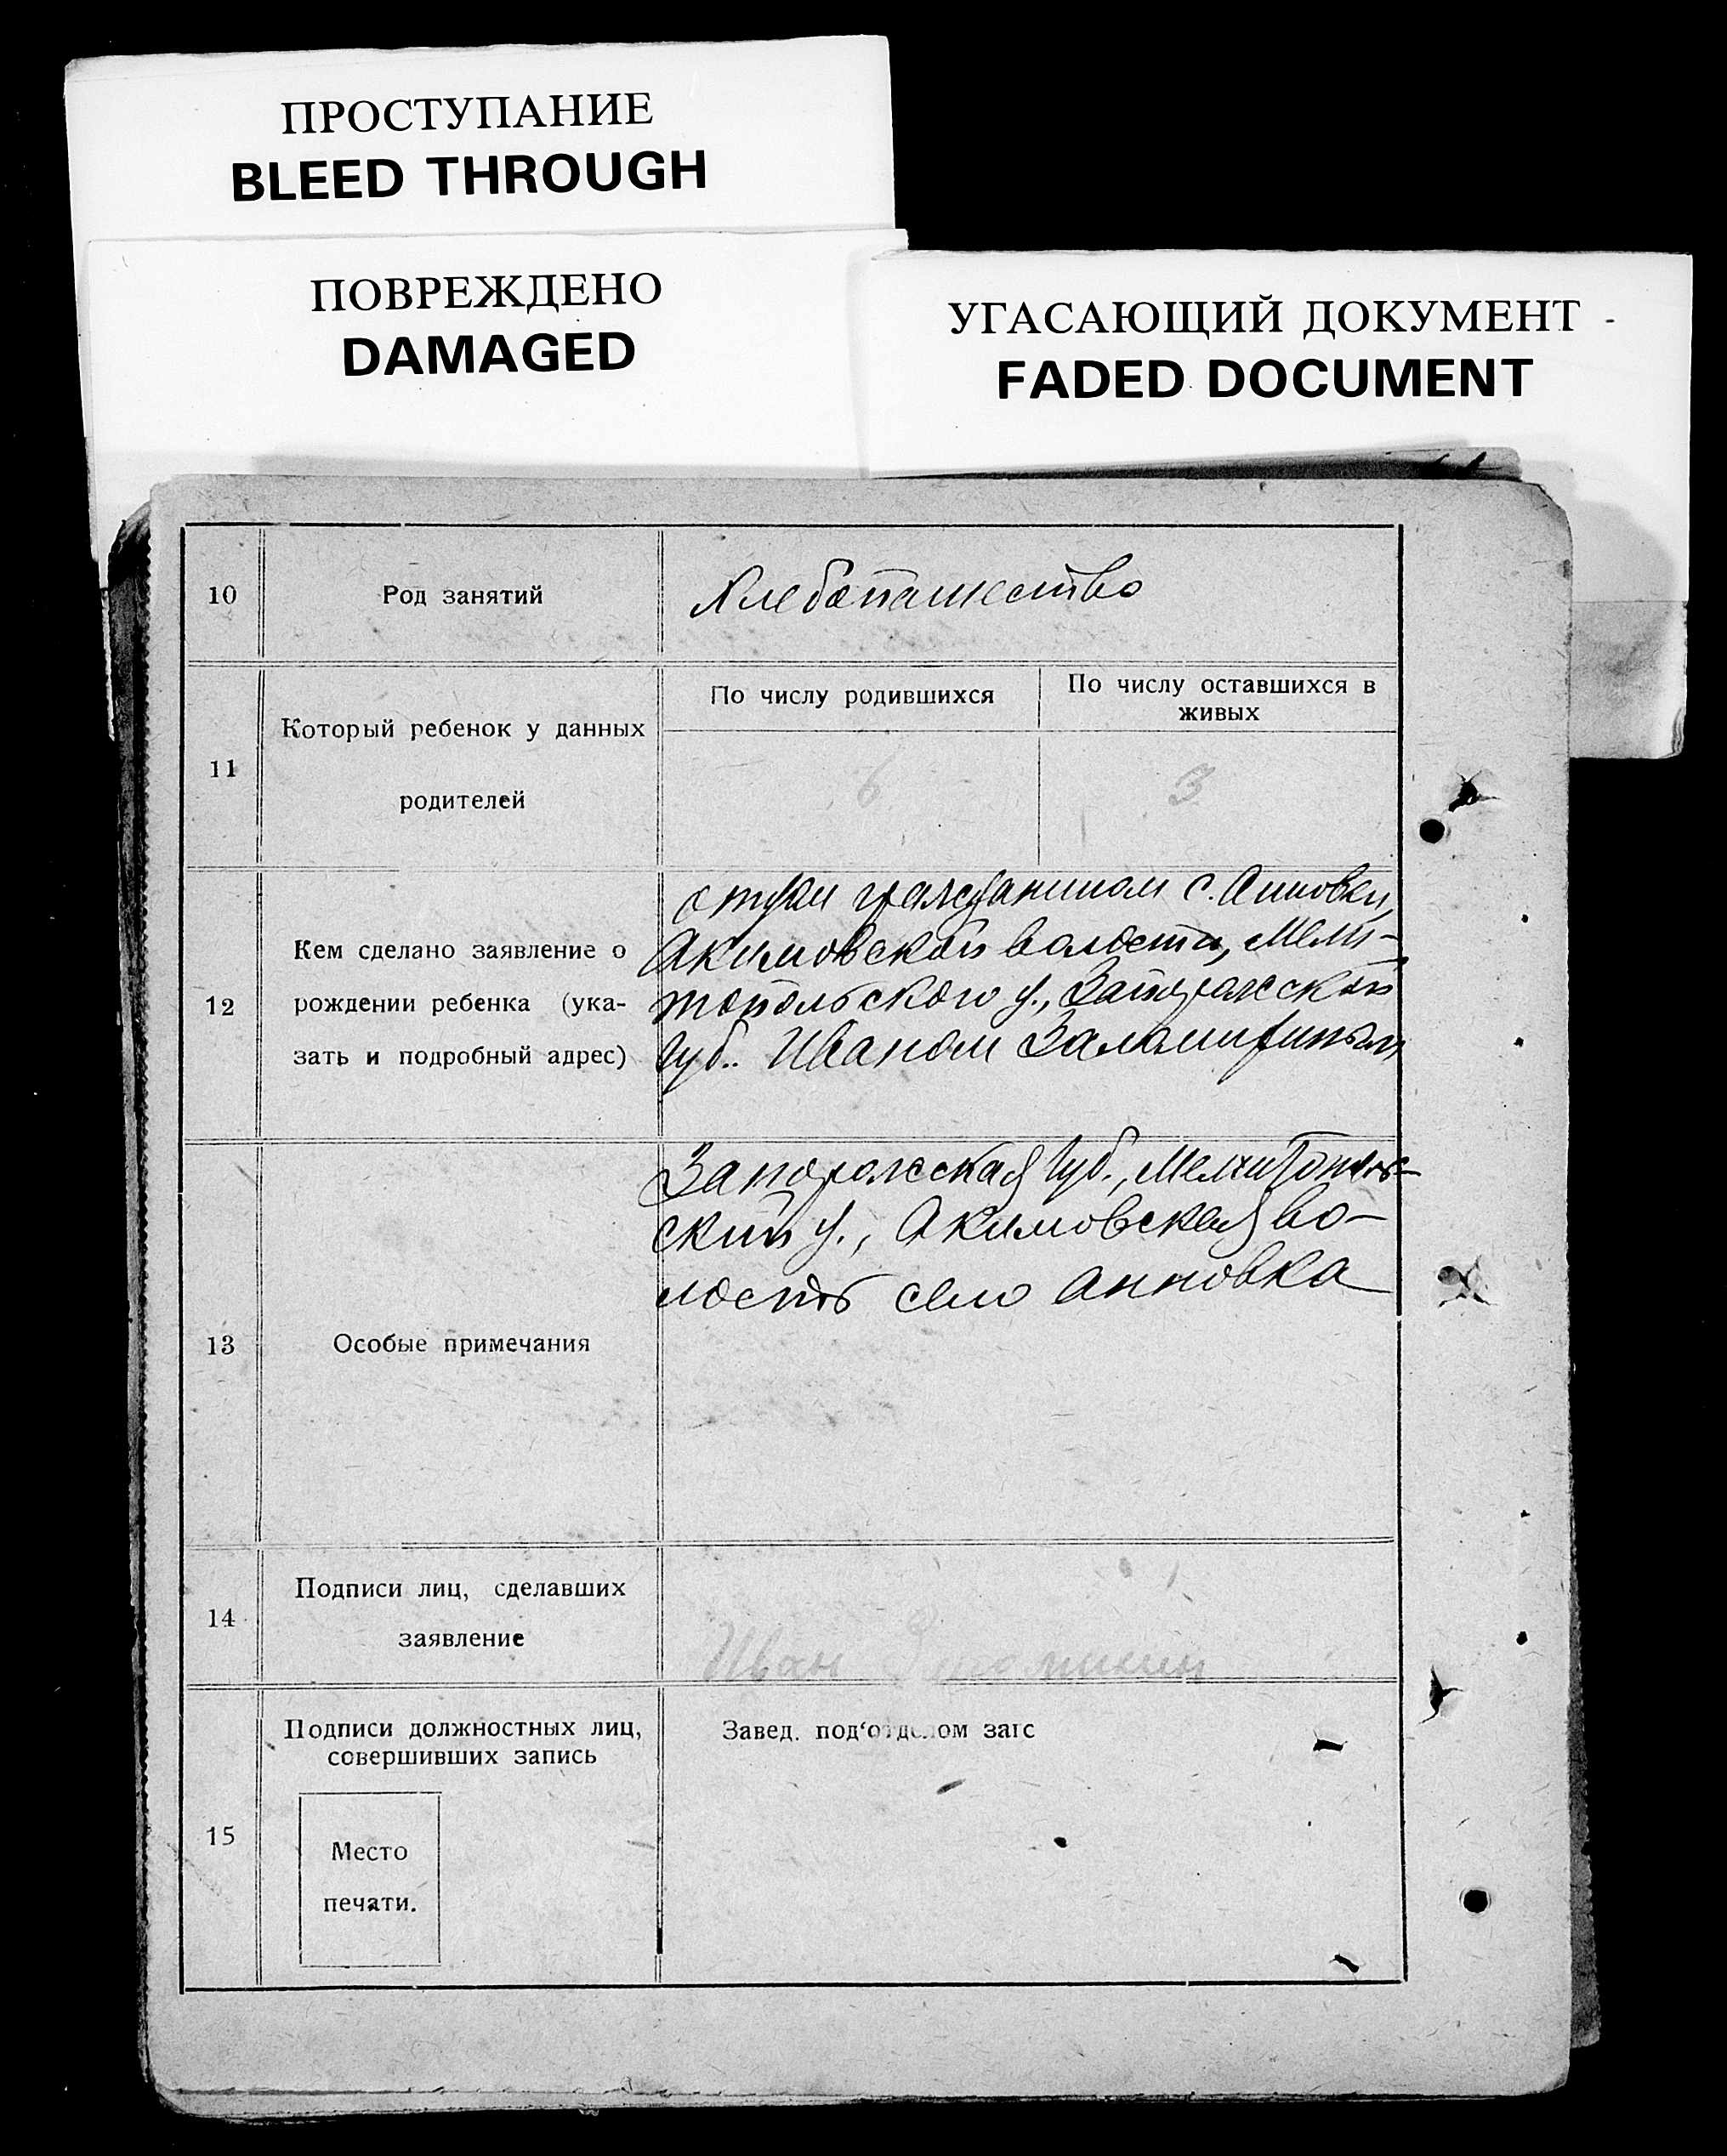 ПРОСТУПАНИЕ
BLEED THROUGH
ПОВРЕЖДЕНО
DAMAGED
УГАСАЮЩИЙ ДОКУМЕНТ
FADED DOCUMENT
10
Род занятий
Хлебопашество
11
Который ребенок у данных
родителей
По числу родившихся
6
По числу оставшихся в
живых
3
12
Кем сделано заявление о
рождении ребенка (ука-
зать и подробный адрес)
отцом гражданином с. Анновки,
Акимовской волости, Мели-
топольского у., Запорожской
губ. Иваном
13
Особые примечания
Запорожская губ., Мелитополь-
ский у., Акимовская во-
лость село Анновка
14
Подписи лиц, сделавших
заявление
Иван
15
Подписи должностных лиц,
совершивших запись
Место
печати.
Завед. под'отделом загс